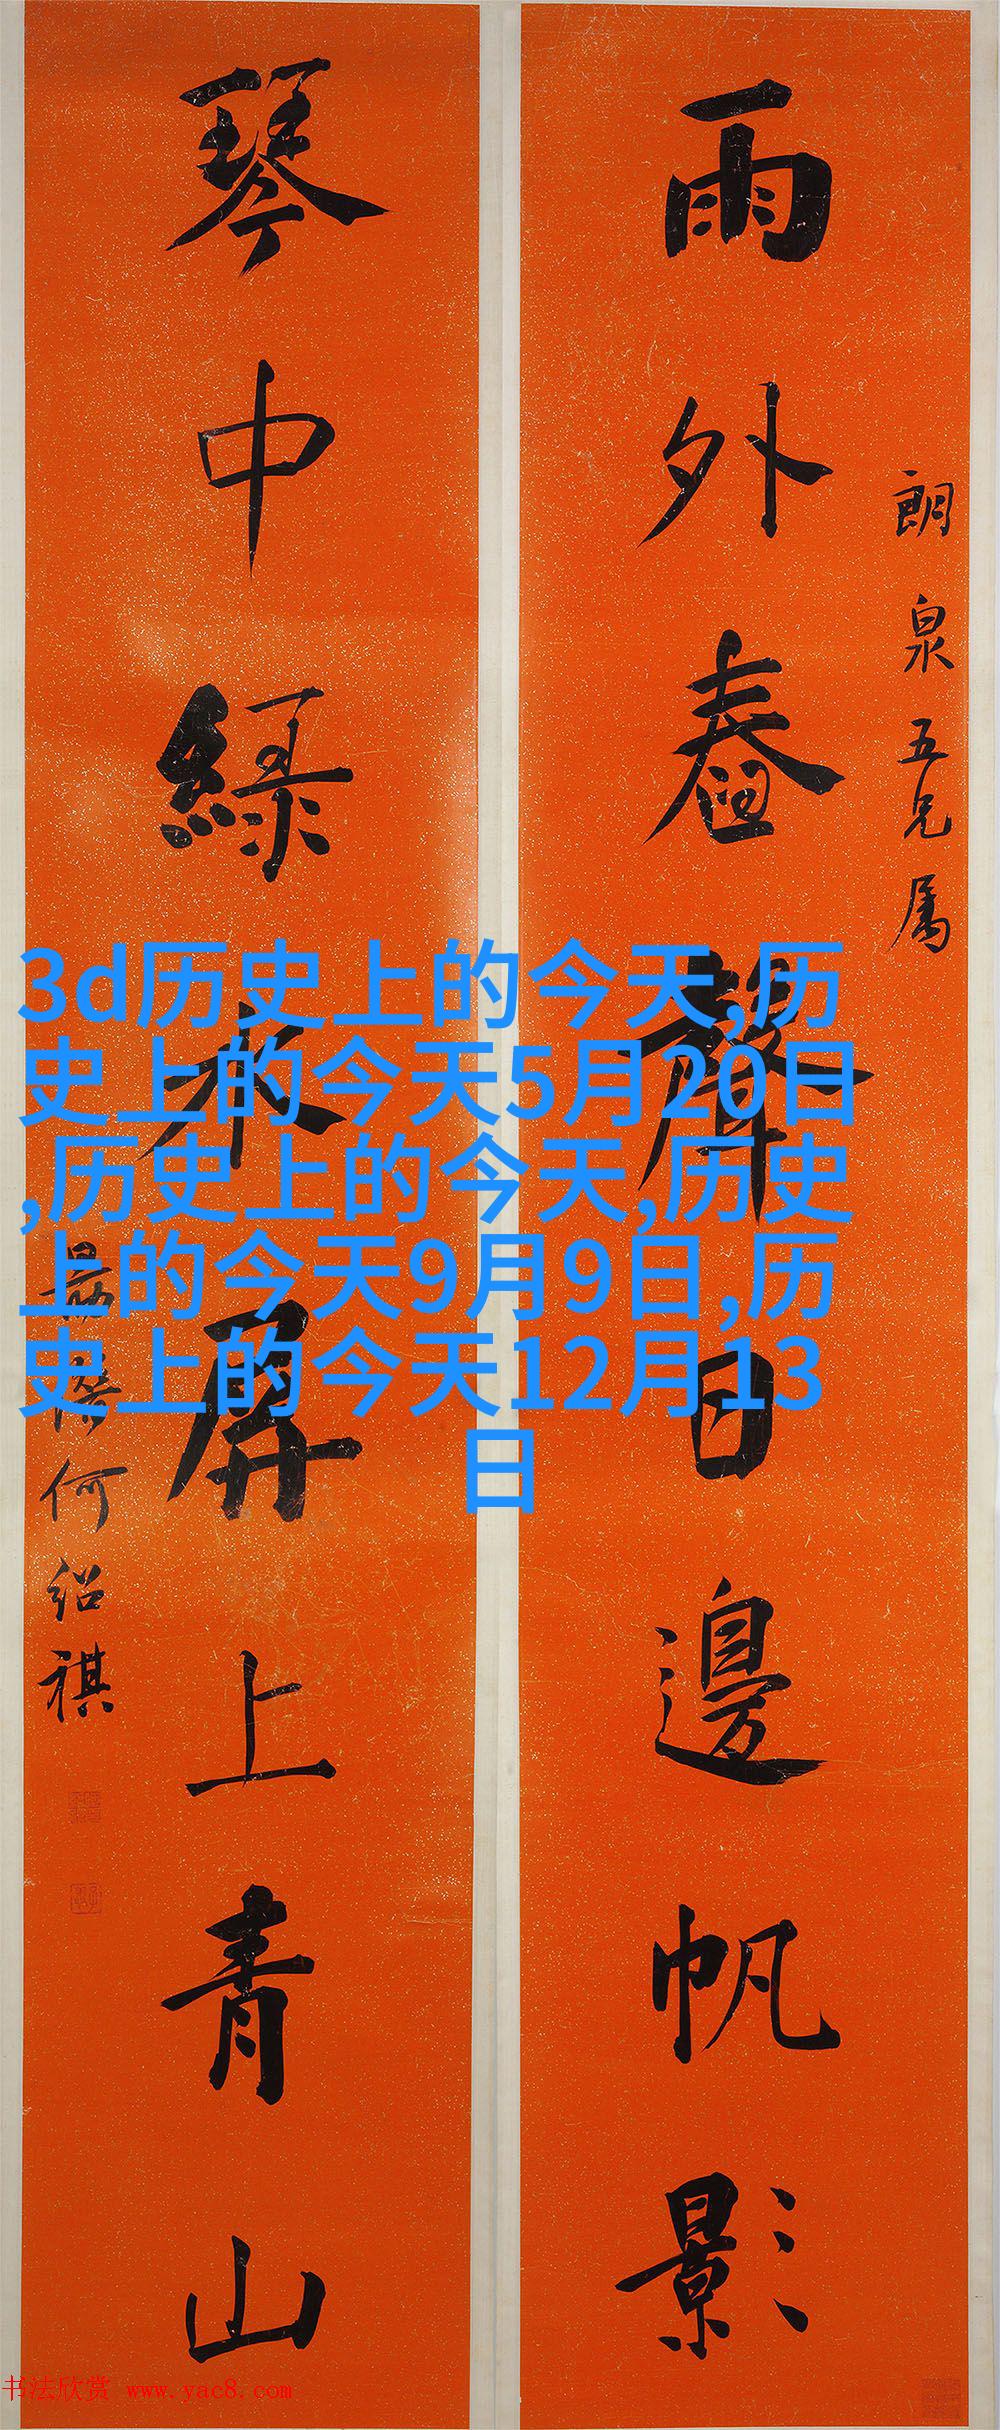 朗泉五兄属
雨外舂聲日邊帆影
琴中綠水屏上青山
何紹祺
3d历史上的今天,历
史上的今天5月20日
,历史上的今天,历史
上的今天9月9日,历
史上的今天12月13
日
书法欣赏 www.yac8.com